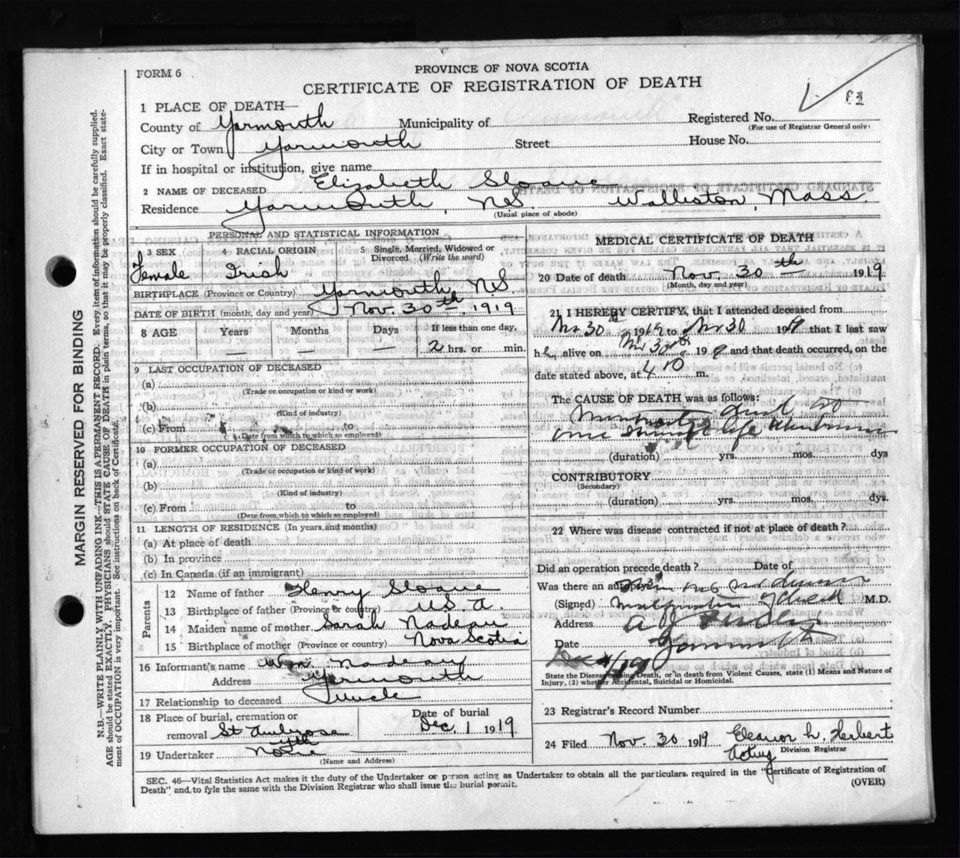 FORM 6
PROVINCE OF NOVA SCOTIA
CERTIFICATE OF REGISTRATION OF DEATH
1 PLACE OF DEATH—
County of Yarmouth Municipality of Registered No.
(For use of Registrar General only)
City or Town Yarmouth Street House No.
If in hospital or institution, give name
2 NAME OF DECEASED Elizabeth Sloane
Residence Yarmouth, N.S. Walliston, Mass
(Usual place of abode)
PERSONAL AND STATISTICAL INFORMATION
3 SEX 4 RACIAL ORIGIN 5 Single, Married, Widowed or Divorced (Write the word)
Female Irish
BIRTHPLACE (Province or Country) Yarmouth, N.S.
DATE OF BIRTH (month, day and year) Nov. 30th 1919
8 AGE Years Months Days If less than one day,
— — — 2 hrs. or min.
9 LAST OCCUPATION OF DECEASED
(a)
(Trade or occupation or kind of work)
(b)
(Kind of industry)
(c) From to
(Date from which to which so employed)
10 FORMER OCCUPATION OF DECEASED
(a)
(Trade or occupation or kind of work)
(b)
(Kind of industry)
(c) From to
(Date from which to which so employed)
11 LENGTH OF RESIDENCE (In years and months)
(a) At place of death
(b) In province
(c) In Canada (if an immigrant)
Parents
12 Name of father Henry Sloane
13 Birthplace of father (Province or country) U.S.A.
14 Maiden name of mother Sarah Nadeau
15 Birthplace of mother (Province or country) Nova Scotia
16 Informant's name Wm. Nadeau
Address Yarmouth
17 Relationship to deceased Uncle
18 Place of burial, cremation or removal St Date of burial Dec 1 1919
19 Undertaker
(Name and Address)
MEDICAL CERTIFICATE OF DEATH
20 Date of death Nov. 30th 1919
(Month, day and year)
21 I HEREBY CERTIFY, that I attended deceased from
Nov 30 1919 to Nov 30 19 that I last saw
h alive on Nov 30th 19 9 and that death occurred, on the
date stated above, at 4 10 m.
The CAUSE OF DEATH was as follows:
(duration) yrs. mos. dys
CONTRIBUTORY
(Secondary)
(duration) yrs. mos. dys.
22 Where was disease contracted if not at place of death?
Did an operation precede death? Date of
Was there an
(Signed) M.D.
Address
Date Dec 4/19
State the Disease causing Death, or in death from Violent Causes, state (1) Means and Nature of
Injury, (2) whether Accidental, Suicidal or Homicidal.
23 Registrar's Record Number
24 Filed Nov. 30 1919 Eleanor h. Herbert
Acting Division Registrar
SEC. 46—Vital Statistics Act makes it the duty of the Undertaker or person acting as Undertaker to obtain all the particulars required in the "Certificate of Registration of
Death" and to fyle the same with the Division Registrar who shall issue the burial permit.
(OVER)
MARGIN RESERVED FOR BINDING
N.B.—WRITE PLAINLY, WITH UNFADING INK—THIS IS A PERMANENT RECORD. Every item of information should be carefully supplied.
AGE should be stated EXACTLY. PHYSICIANS should STATE CAUSE OF DEATH in plain terms, so that it may be properly classified. Exact state-
ment of OCCUPATION is very important. See instructions on back of Certificate.